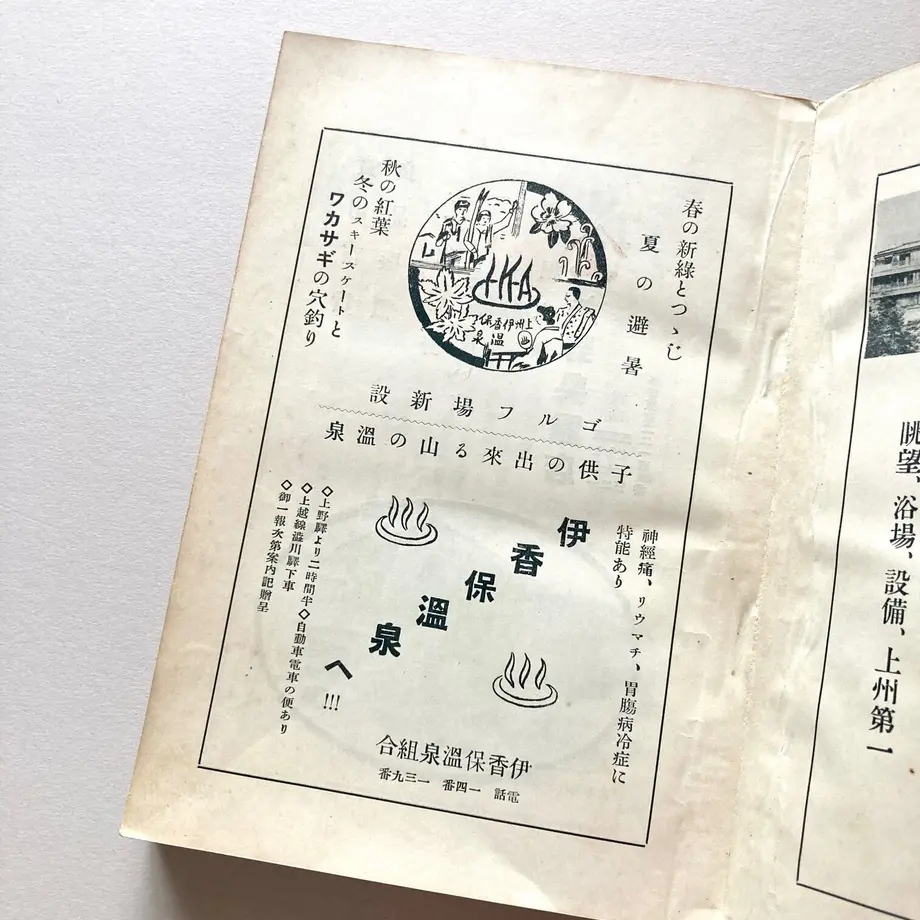 春の新綠とつゝじ
夏の避暑
秋の紅葉
冬のスキースケートと
ワカサギの穴釣り
IKA
上州伊香保
溫泉
ゴルフ場新設
子供の出來る山の溫泉
神經痛、リウマチ、胃腸病冷症に
特能あり
伊香保溫泉へ!!!
◇上野驛より二時間半◇自動車電車の便あり
◇上越線澁川驛下車
◇御一報次第案內記贈呈
伊香保溫泉組合
電話 一四番 一三九番
眺望、浴場、設備、上州第一